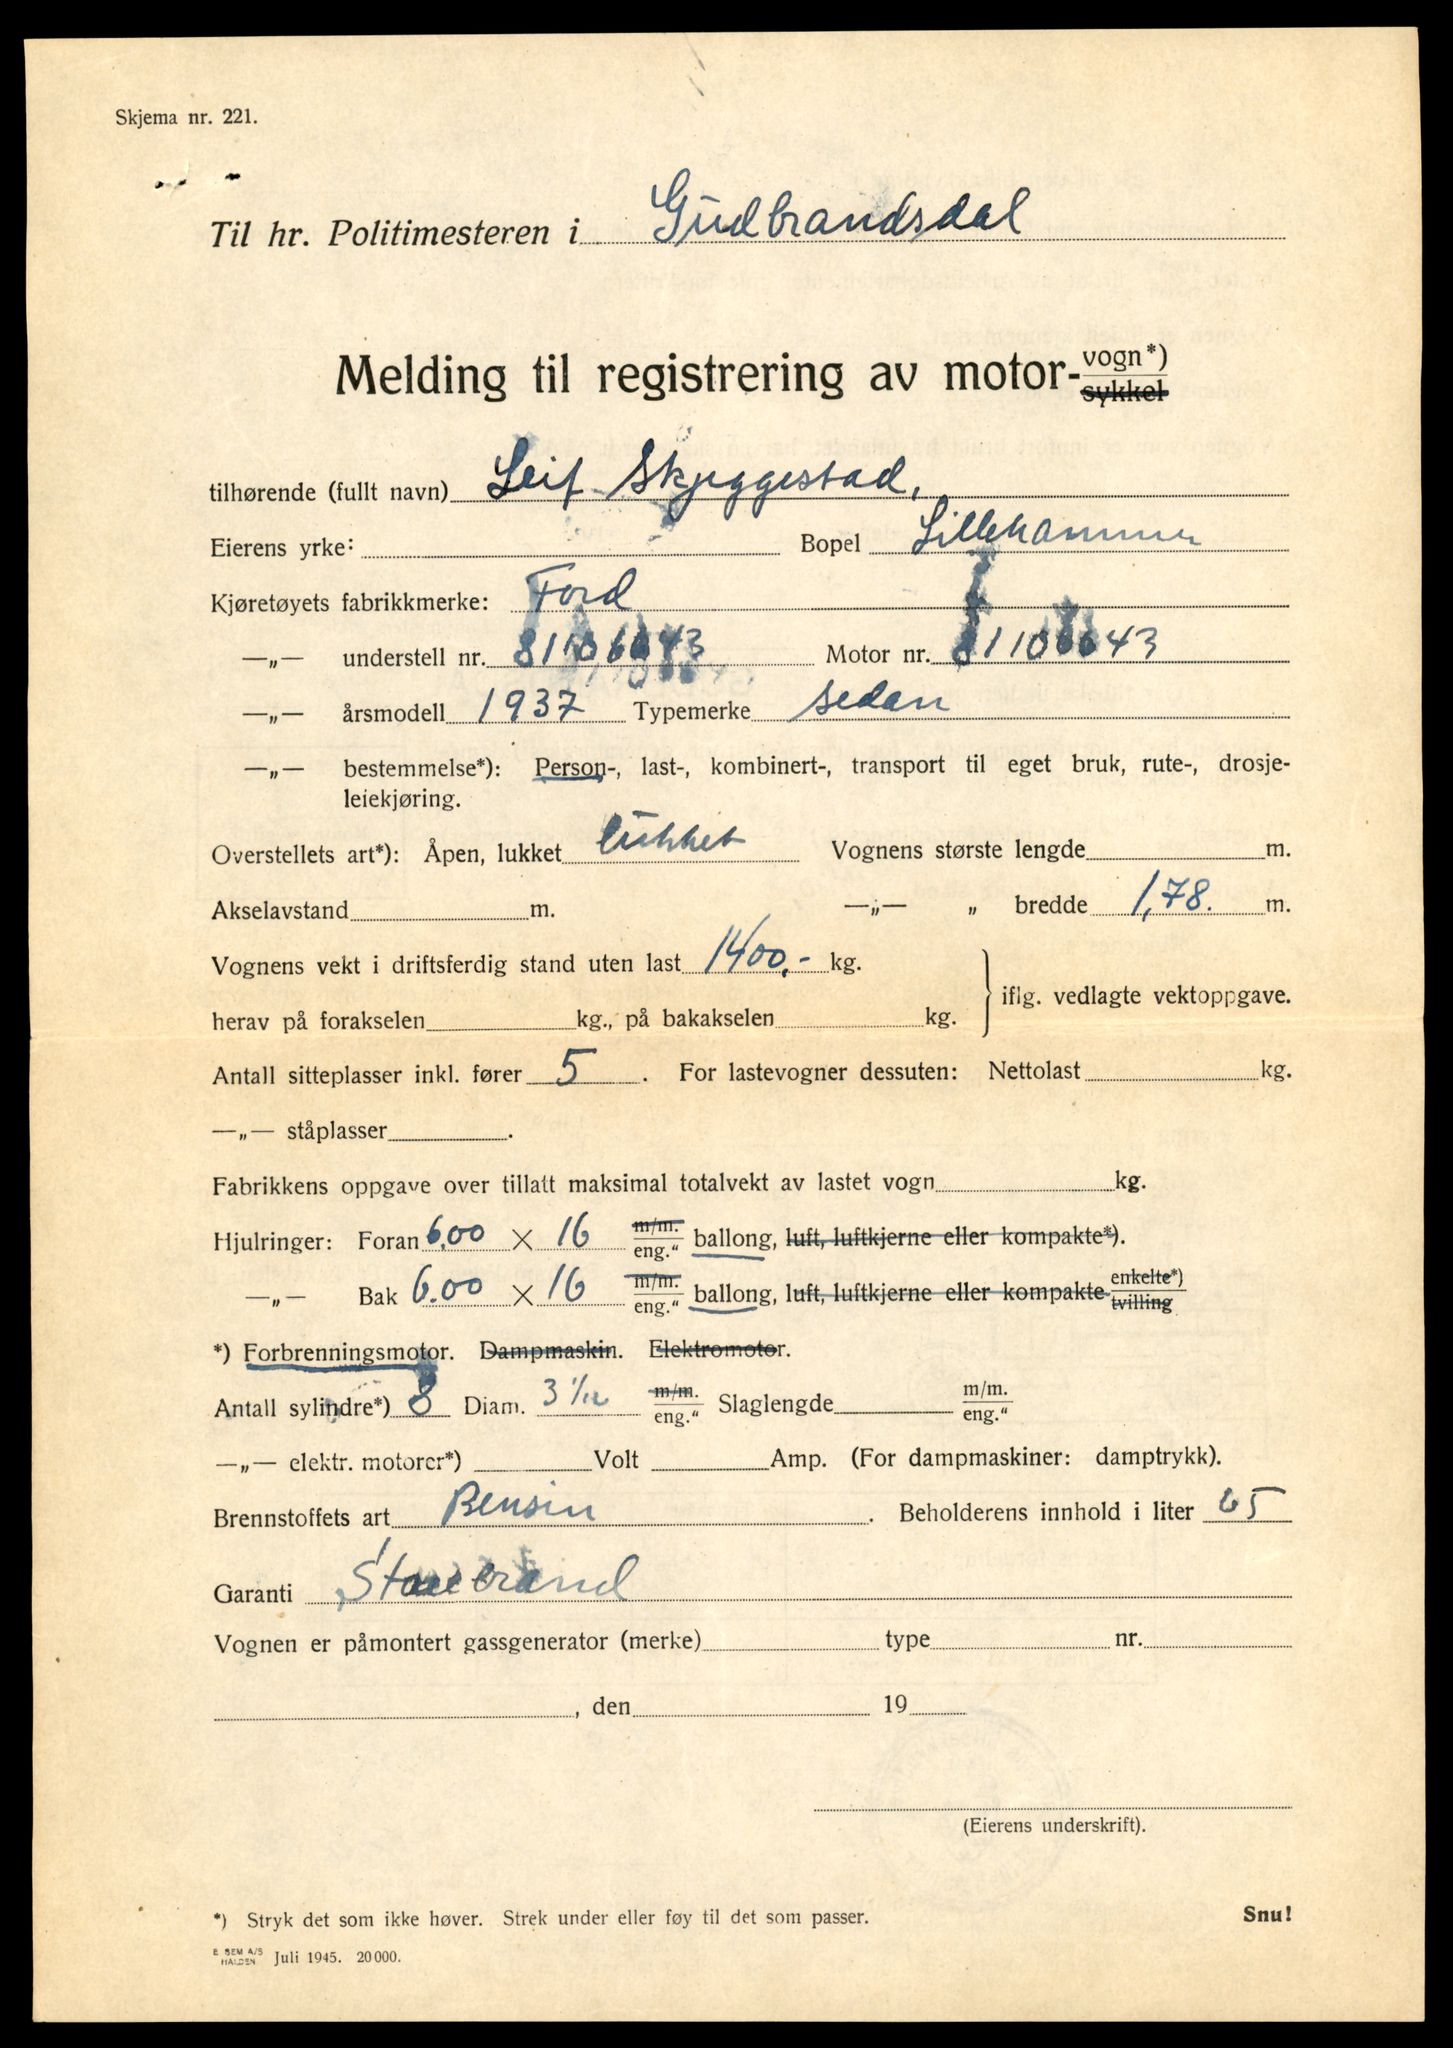 Skjema nr. 221.
Til hr. Politimesteren i Gudbrandsdal
Melding til registrering av motor- vogn*)
sykkel
tilhørende (fullt navn) Leif Skjeggestad,
Eierens yrke: Bopel Lillehammer
Kjøretøyets fabrikkmerke: Ford
—„— understell nr. 81106643 Motor nr. 81106643
—„— årsmodell 1937 Typemerke sedan
—„— bestemmelse*): Person-, last-, kombinert-, transport til eget bruk, rute-, drosje-
leiekjøring.
Overstellets art*): Åpen, lukket lukket Vognens største lengde m.
Akselavstand m. —„— „ bredde 1,78. m.
Vognens vekt i driftsferdig stand uten last 1400,- kg.
iflg. vedlagte vektoppgave.
herav på forakselen kg., på bakakselen kg.
Antall sitteplasser inkl. fører 5 . For lastevogner dessuten: Nettolast kg.
—„— ståplasser .
Fabrikkens oppgave over tillatt maksimal totalvekt av lastet vogn kg.
Hjulringer: Foran 6.00 × 16 m/m. eng.“ ballong, luft, luftkjerne eller kompakte*).
—„— Bak 6.00 × 16 m/m. eng.“ ballong, luft, luftkjerne eller kompakte enkelte*) tvilling
*) Forbrenningsmotor. Dampmaskin. Elektromotor.
Antall sylindre*) 8 Diam. 3 1/12 m/m. eng.“ Slaglengde m/m. eng.“
—„— elektr. motorer*) Volt Amp. (For dampmaskiner: damptrykk).
Brennstoffets art Bensin . Beholderens innhold i liter 65
Garanti Storebrand
Vognen er påmontert gassgenerator (merke) type nr.
, den 19
(Eierens underskrift).
*) Stryk det som ikke høver. Strek under eller føy til det som passer. Snu!
E. SEM A/S
HALDEN Juli 1945. 20000.